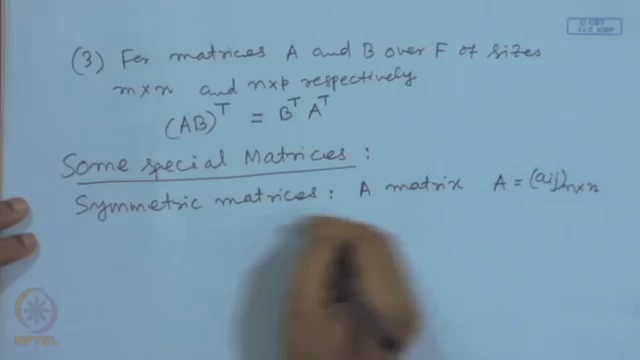 (3) For matrices A and B over F of sizes
m×n and n×p respectively
(AB)ᵀ = Bᵀ Aᵀ
Some special Matrices :
Symmetric matrices : A matrix A = (aij)n×n
NPTEL